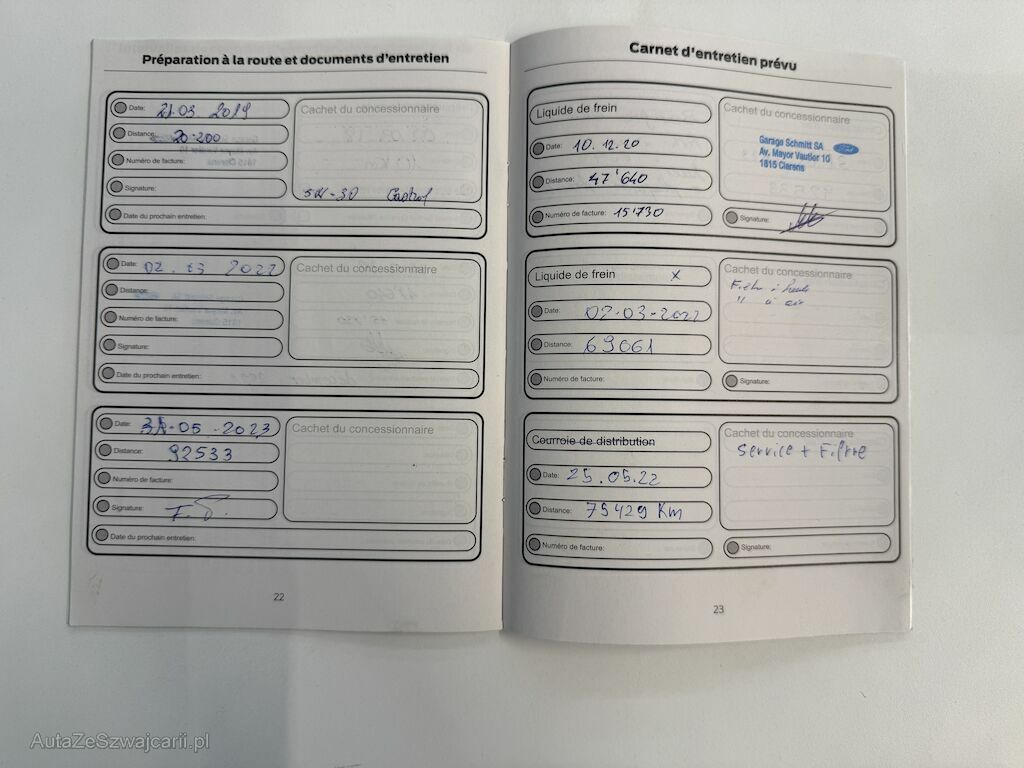 Préparation à la route et documents d'entretien
Date: 21.03 2019
Distance: 20.200
Numéro de facture:
Signature:
Date du prochain entretien:
Cachet du concessionnaire
5W-30 Castrol
Date: 02.03 2022
Distance:
Numéro de facture:
Signature:
Date du prochain entretien:
Cachet du concessionnaire
Date: 31-05-2023
Distance: 92533
Numéro de facture:
Signature:
Date du prochain entretien:
Cachet du concessionnaire
22
Carnet d'entretien prévu
Liquide de frein
Date: 10.12.20
Distance: 47'640
Numéro de facture: 15'730
Cachet du concessionnaire
Garage Schmitt SA
Av. Mayor Vautier 10
1815 Clarens
Ford
Signature:
Liquide de frein x
Date: 02-03-2022
Distance: 69061
Numéro de facture:
Cachet du concessionnaire
Filtre à huile
" à air
Signature:
Courroie de distribution
Date: 25.05.22
Distance: 75429 Km
Numéro de facture:
Cachet du concessionnaire
Service + Filtre
Signature:
23
AutaZeSzwajcarii.pl